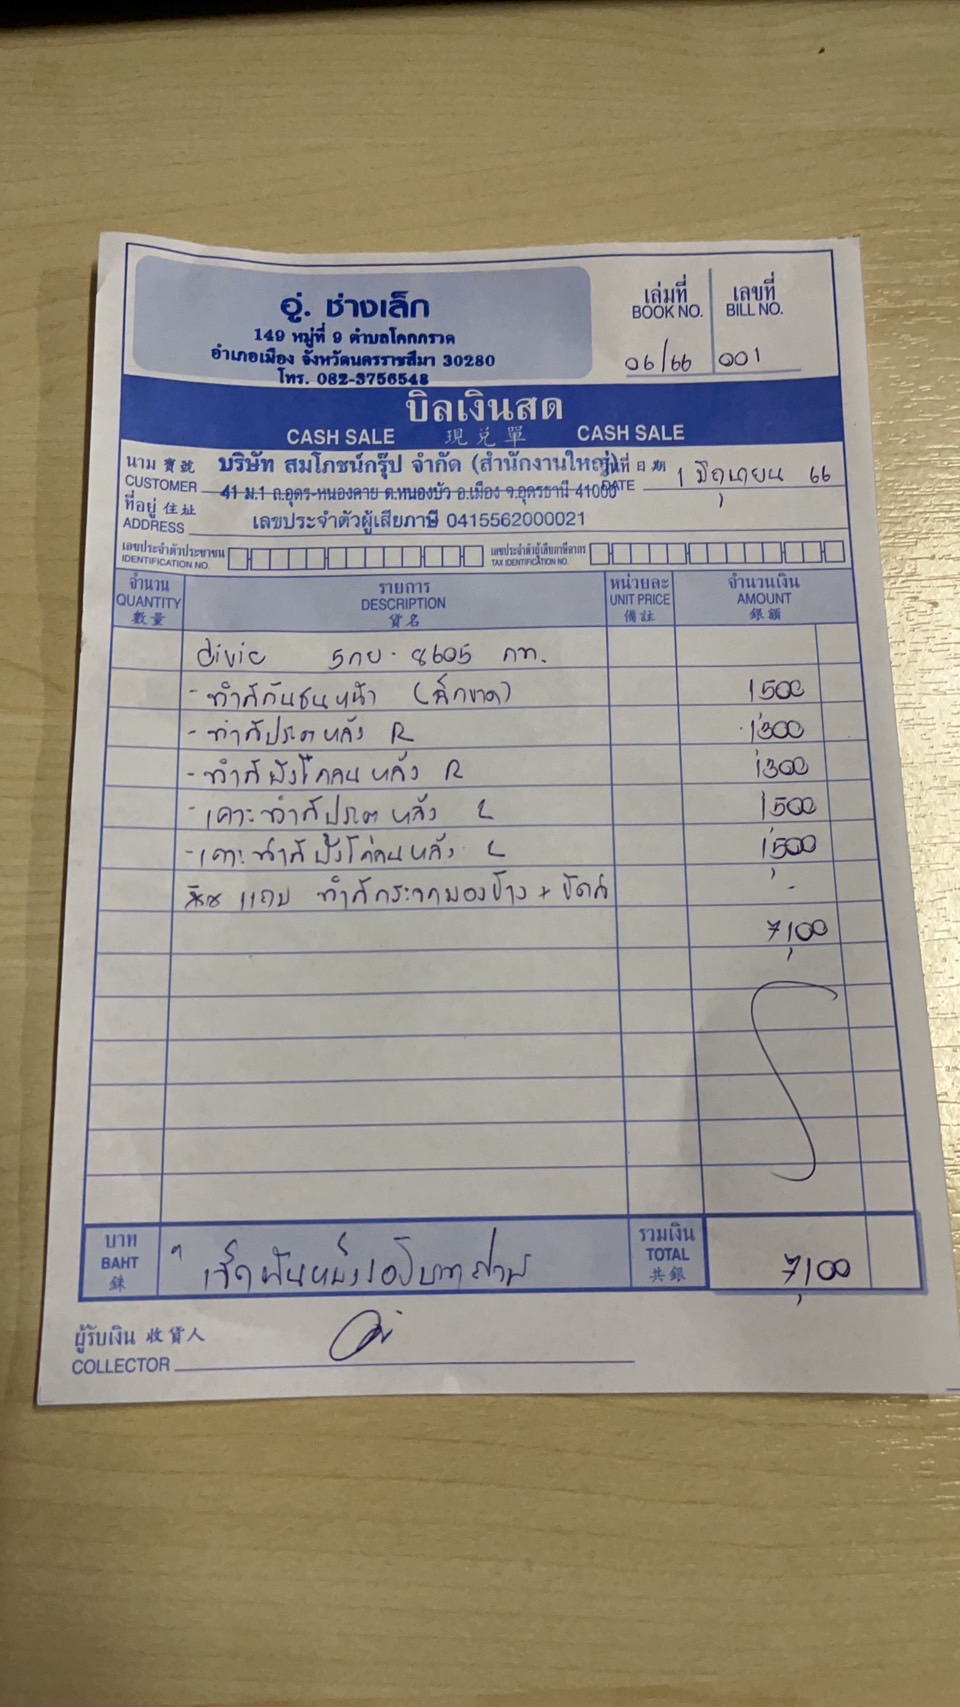 อู่. ช่างเล็ก
149 หมู่ที่ 9 ตำบลโคกกรวด
อำเภอเมือง จังหวัดนครราชสีมา 30280
โทร. 082-3756548
เล่มที่ เลขที่
BOOK NO. BILL NO.
06/66 001
บิลเงินสด
CASH SALE 現兌單 CASH SALE
นาม 寶號 บริษัท สมโภชน์กรุ๊ป จำกัด (สำนักงานใหญ่) วันที่ 日期 1 มิถุนายน 66
CUSTOMER 41 ม.1 ถ.อุดร-หนองคาย ต.หนองบัว อ.เมือง จ.อุดรธานี 41000 DATE
ที่อยู่ 住址
ADDRESS เลขประจำตัวผู้เสียภาษี 0415562000021
เลขประจำตัวประชาชน เลขประจำตัวผู้เสียภาษีอากร
IDENTIFICATION NO. TAX IDENTIFICATION NO.
จำนวน รายการ หน่วยละ จำนวนเงิน
QUANTITY DESCRIPTION UNIT PRICE AMOUNT
數量 貨名 備註 銀額
civic 5กย-8605 กท.
- ทำสีกันชนหน้า 1500
- ทำสีประตูหลัง R 1300
- ทำสีบังโคลนหลัง R 1300
- เคาะทำสีประตูหลัง L 1500
- เคาะทำสีบังโคลนหลัง L 1500
แถม ทำสีกระจกมองข้าง + ขัดสี -
7,100
บาท รวมเงิน
BAHT เจ็ดพันหนึ่งร้อยบาทถ้วน TOTAL 7,100
銖 共銀
ผู้รับเงิน 收貨人
COLLECTOR